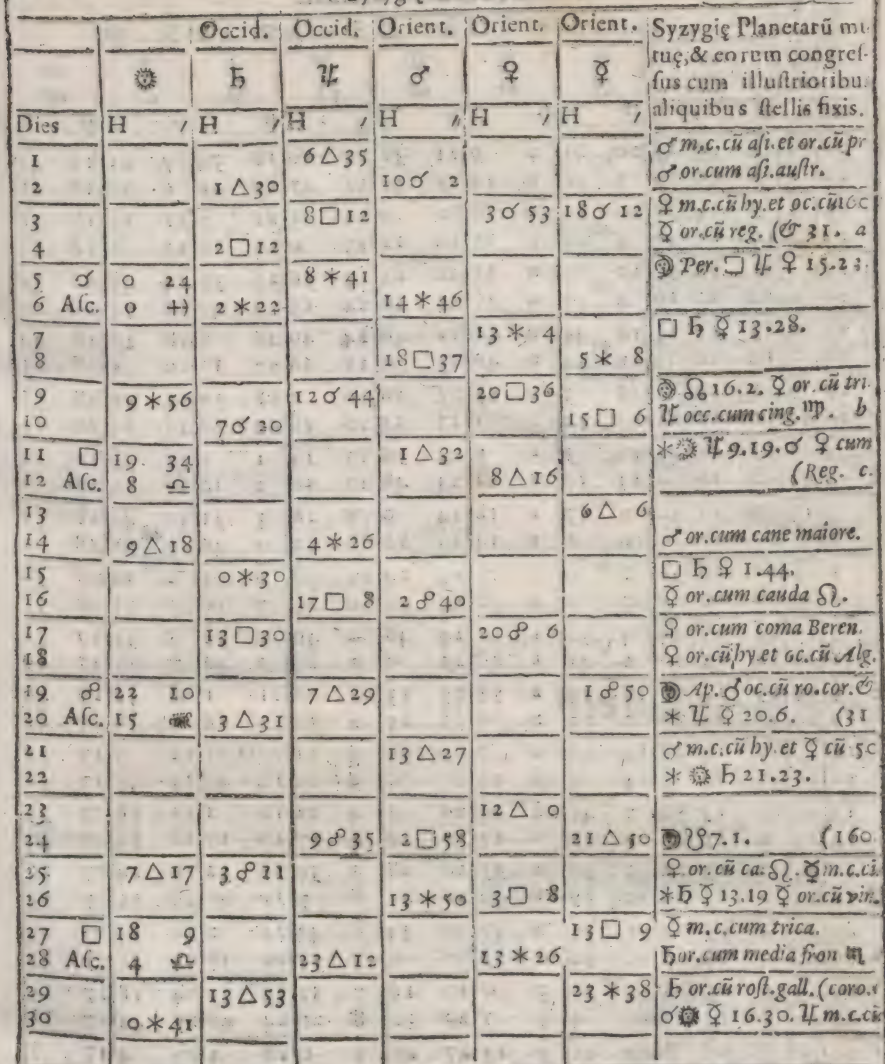 Occid. Occid. Orient. Orient. Orient. Syzygię Planetarũ mu
tuę, & eorum congres-
☉ ♄ ♃ ♂ ♀ ☿ sus cum illustrioribu
Dies H ′ H ′ H ′ H ′ H ′ H ′ aliquibus stellis fixis.
1 6 △ 35 ♂ m.c.cũ asi. et or.cũ pr
2 1 △ 30 10 ☌ 2 ♂ or.cum asi.austr.
3 8 □ 12 3 ☌ 53 18 ☌ 12 ♀ m.c.cũ hy.et oc.cũ
4 2 □ 12 ☿ or.cũ reg. (& 31. a
5 ☌ 0 24 8 ✶ 41 Per. □ ♃ ♀ 15.23
6 Asc. 0 ♓ 2 ✶ 22 14 ✶ 46
7 13 ✶ 4 □ ♄ ☿ 13.28.
8 18 □ 37 5 ✶ 8
9 9 ✶ 56 12 ☌ 44 20 □ 36 ☊ 16.2. ☿ or.cũ tri
10 7 ☌ 20 15 □ 6 ♃ occ.cum cing. ♍. b
11 □ 19. 34 1 △ 32 ✶ ☉ ♃ 9.19. ♂ ♀ cum
12 Asc. 8 ♎ 8 △ 16 (Reg. c.
13 6 △ 6
14 9 △ 18 4 ✶ 26 ♂ or.cum cane maiore.
15 0 ✶ 30 □ ♄ ♀ 1.44.
16 17 □ 8 2 ☍ 40 ☿ or.cum cauda ♌.
17 13 □ 30 20 ☍ 6 ♀ or.cum coma Beren.
18 ♀ or.cũ hy.et oc.cũ Alg.
19 ☍ 22 10 7 △ 29 1 ☍ 50 Ap. ♂ oc.cũ ro.cor. &
20 Asc. 15 ♒ 3 △ 31 ✶ ♃ ☿ 20.6. (31
21 13 △ 27 ♂ m.c.cũ hy.et ☿ cũ
22 ✶ ☉ ♄ 21.23.
23 12 △ 0
24 9 ☍ 35 2 □ 58 21 △ 50 ☋ 7.1. (160.
25 7 △ 17 3 ☍ 21 ♀ or. cũ ca. ♌. ☿ m.c.ci
26 13 ✶ 50 3 □ 8 ✶ ♄ ☿ 13.19 ☿ or.cũ vin.
27 □ 18 9 13 □ 9 ☿ m.c.cum trica.
28 Asc. 4 ♎ 23 △ 12 13 ✶ 26 ♄ or.cum media fron ♏
29 13 △ 53 23 ✶ 38 ♄ or.cũ rost.gall. (coro.
30 0 ✶ 41 ☌ ☉ ☿ 16.30. ♃ m.c.cũ